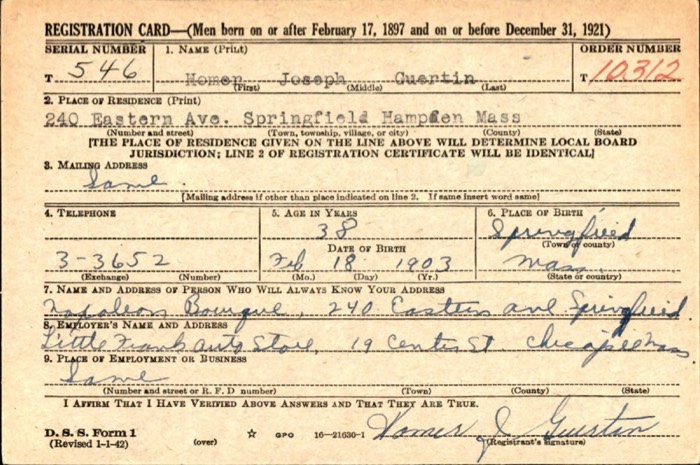 REGISTRATION CARD—(Men born on or after February 17, 1897 and on or before December 31, 1921)
SERIAL NUMBER 1. NAME (Print) ORDER NUMBER
T 546 Homer Joseph Guertin T 10312
(First) (Middle) (Last)
2. PLACE OF RESIDENCE (Print)
240 Eastern Ave. Springfield Hampden Mass
(Number and street) (Town, township, village, or city) (County) (State)
[THE PLACE OF RESIDENCE GIVEN ON THE LINE ABOVE WILL DETERMINE LOCAL BOARD
JURISDICTION; LINE 2 OF REGISTRATION CERTIFICATE WILL BE IDENTICAL]
3. MAILING ADDRESS
Same
[Mailing address if other than place indicated on line 2. If same insert word same]
4. TELEPHONE 5. AGE IN YEARS 6. PLACE OF BIRTH
38 Springfield
DATE OF BIRTH (Town or county)
3-3652 Feb 18 1903 Mass
(Exchange) (Number) (Mo.) (Day) (Yr.) (State or country)
7. NAME AND ADDRESS OF PERSON WHO WILL ALWAYS KNOW YOUR ADDRESS
Napoleon Bourque, 240 Eastern ave Springfield
8. EMPLOYER'S NAME AND ADDRESS
Little Frank Auto Store, 19 Center St. Chicopee Mass
9. PLACE OF EMPLOYMENT OR BUSINESS
Same
(Number and street or R. F. D number) (Town) (County) (State)
I AFFIRM THAT I HAVE VERIFIED ABOVE ANSWERS AND THAT THEY ARE TRUE.
D. S. S. Form 1
(Revised 1-1-42) (over) ☆ GPO 16—21630-1 Homer J Guertin
(Registrant's signature)